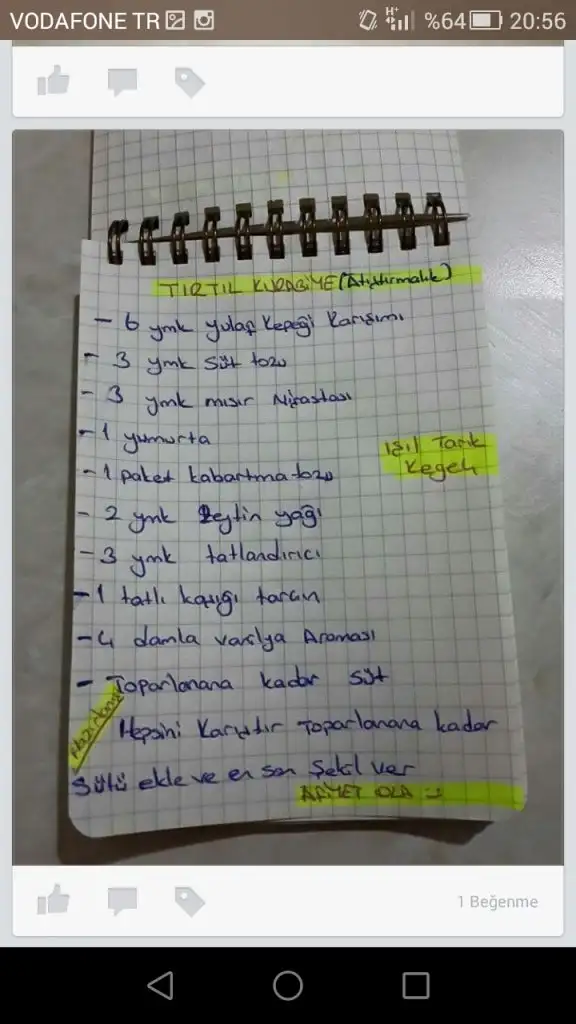 VODAFONE TR
%64 20:56
TIRTIL KURABİYE (Atıştırmalık)
- 6 ymk yulaf kepeği karışımı
- 3 ymk süt tozu
- 3 ymk mısır Nişastası
- 1 yumurta
Işıl Tarık
Kegeh
- 1 paket kabartma tozu
- 2 ymk zeytin yağı
- 3 ymk tatlandırıcı
- 1 tatlı kaşığı tarçın
- 4 damla vanilya Araması
- Toparlanana kadar süt
Hazırlanışı
Hepsini Karıştır Toparlanana kadar
Sütü ekle ve en son Şekil ver
AFİYET OLA
1 Beğenme